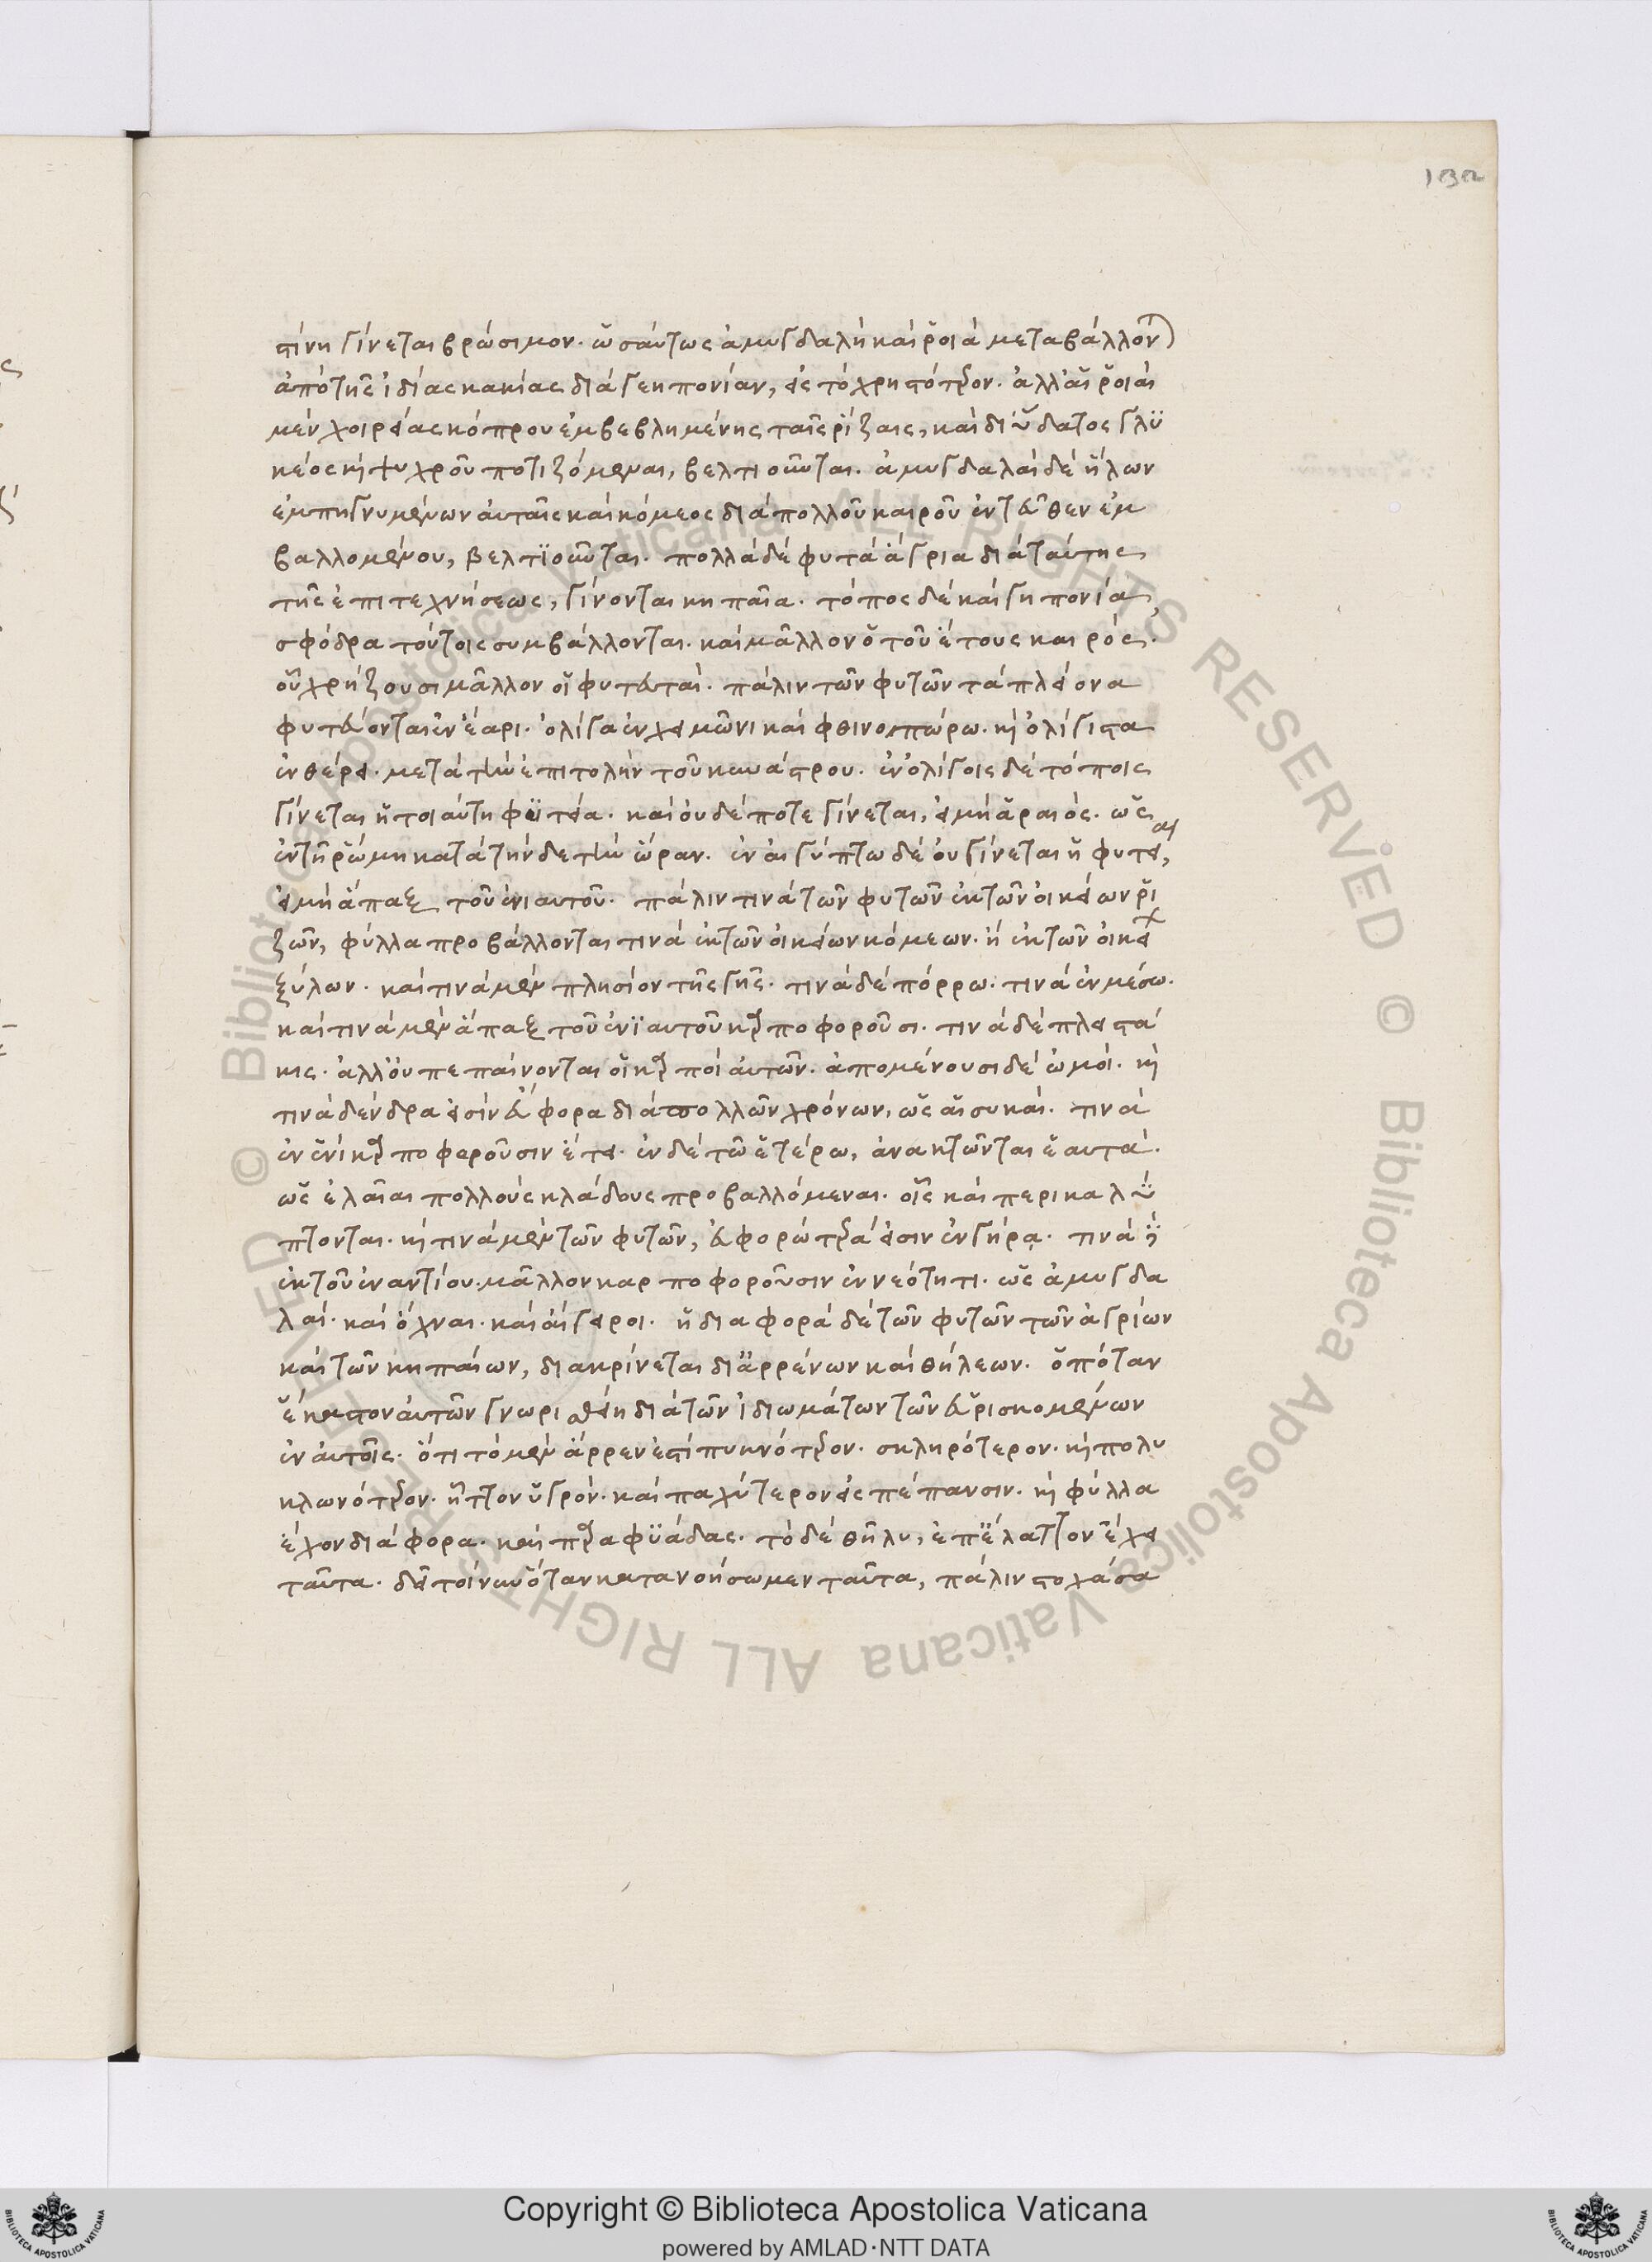 132
στίνη γίνεται βρώσιμον. ὡσαύτως ἀμυγδαλῆ καὶ ῥοιὰ μεταβάλλον
ἀπὸ τῆς ἰδίας κακίας διὰ γεηπονίαν, εἰς τὸ χρηστότερον. ἀλλ' αἱ ῥοιαὶ
μὲν χοιρείας κόπρου ἐμβεβλημένης ταῖς ῥίζαις, καὶ δι' ὕδατος γλυ
κέος καὶ ψυχροῦ ποτιζόμεναι, βελτιοῦνται. ἀμυγδαλαὶ δὲ ἥλων
ἐμπηγνυμένων αὐταῖς καὶ κόμεος διὰ πολλοῦ καιροῦ ἐντεῦθεν ἐμ
βαλλομένου, βελτϊοῦνται. πολλὰ δὲ φυτὰ ἄγρια διὰ ταύτης
τῆς ἐπιτεχνήσεως, γίνονται κηπαῖα. τόπος δὲ καὶ γηπονία,
σφόδρα τούτοις συμβάλλονται. καὶ μᾶλλον ὁ τοῦ ἔτους καιρός.
οὗ χρήζουσι μᾶλλον οἱ φυτευταί. πάλιν τῶν φυτῶν τὰ πλείονα
φυτεύονται ἐν ἔαρι. ὀλίγα ἐν χειμῶνι καὶ φθινοπώρω. καὶ ὀλίγιστα
ἐν θέρει. μετὰ τὴν ἐπιτολὴν τοῦ κυνάστρου. ἐν ὀλίγοις δὲ τόποις
γίνεται ἡ τοιαύτη φϋτεία. καὶ οὐδέποτε γίνεται, εἰ μὴ ἀραιός. ὡς
ἐν τῇ ῥώμη κατὰ τήνδε τὴν ὥραν. ἐν αἰγύπτω δὲ οὐ γίνεται ἡ φυτεία,
εἰ μὴ ἅπαξ τοῦ ἐνιαυτοῦ. πάλιν τινὰ τῶν φυτῶν ἐκ τῶν οἰκείων ῥι
ζῶν, φύλλα προβάλλονται τινὰ ἐκ τῶν οἰκείων κόμεων. ἢ ἐκ τῶν οἰκείων
ξύλων. καὶ τινὰ μὲν πλησίον τῆς γῆς. τινὰ δὲ πόρρω. τινὰ ἐν μέσω.
καὶ τινὰ μὲν ἅπαξ τοῦ ἐνϊαυτοῦ καρποφοροῦσι. τινὰ δὲ πλειστά
κις. ἀλλ' οὐ πεπαίνονται οἱ καρποὶ αὐτῶν. ἀπομένουσι δὲ ὠμοί. καὶ
τινὰ δένδρα εἰσὶν εὔφορα διὰ πολλῶν χρόνων, ὡς αἱ συκαῖ. τινὰ
ἐν ἑνὶ καρποφοροῦσιν ἔτει. ἐν δὲ τῶ ἑτέρω, ἀνακτῶνται ἑαυτά.
ὡς ἐλαῖαι πολλοὺς κλάδους προβαλλόμεναι. οἷς καὶ περικαλύ
πτονται. καὶ τινὰ μὲν τῶν φυτῶν, εὐφορώτερά εἰσιν ἐν γήρᾳ. τινὰ δὲ
ἐκ τοῦ ἐναντίου. μᾶλλον καρποφοροῦσιν ἐν νεότητι. ὡς ἀμυγδα
λαῖ. καὶ ὄχναι. καὶ αἴγειροι. ἡ διαφορὰ δὲ τῶν φυτῶν τῶν ἀγρίων
καὶ τῶν κηπαίων, διακρίνεται δι' ἀρρένων καὶ θήλεων. ὁπόταν
ἕκαστον αὐτῶν γνωρισθείη διὰ τῶν ἰδιωμάτων τῶν εὑρισκομένων
ἐν αὐτοῖς. ὅτι τὸ μὲν ἄρρεν ἐστὶ πυκνότερον. σκληρότερον. καὶ πολυ
κλωνότερον. ἧττον ὑγρόν. καὶ παχύτερον εἰς πέπανσιν. καὶ φύλλα
ἔχον διάφορα. καὶ παραφϋάδας. τὸ δὲ θῆλυ, ἐπ' ἔλαττον ἔχει
ταῦτα. δεῖ τοίνυν ὅταν κατανοήσωμεν ταῦτα, πάλιν στοχάσα
© Biblioteca Apostolica Vaticana ALL RIGHTS RESERVED © Biblioteca Apostolica Vaticana ALL RIGHTS RESERVED
Copyright © Biblioteca Apostolica Vaticana
powered by AMLAD·NTT DATA
BIBLIOTECA APOSTOLICA VATICANA
BIBLIOTECA APOSTOLICA VATICANA